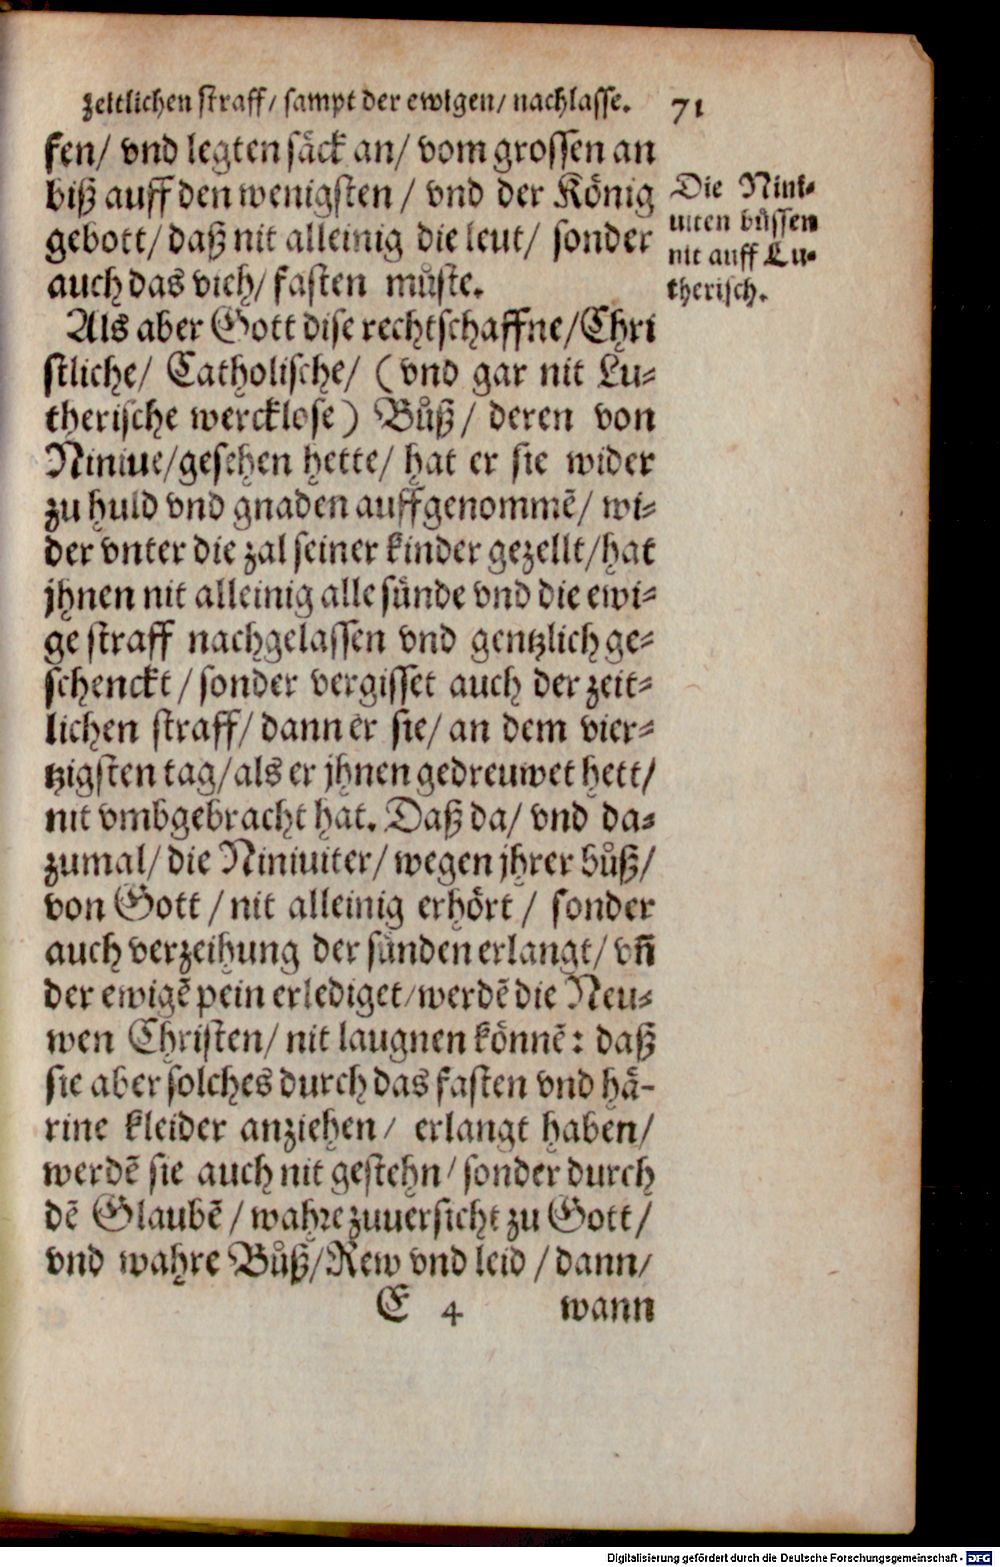 zeitlichen straff/ sampt der ewigen/ nachlasse. 71
sen/ vnd legten säck an/ vom grossen an
biß auff den wenigsten / vnd der König
gebott/ daß nit alleinig die leut/ sonder
auch das vieh/ fasten muͤste.
Die Nini-
uiten buͤssen
nit auff Lu-
therisch.
Als aber Gott dise rechtschaffne/Chri
stliche/ Catholische/ (vnd gar nit Lu-
therische wercklose) Bůß/ deren von
Niniue/gesehen hette/ hat er sie wider
zu huld vnd gnaden auffgenommẽ/ wi-
der vnter die zal seiner kinder gezellt/hat
jhnen nit alleinig alle sünde vnd die ewi-
ge straff nachgelassen vnd gentzlich ge-
schenckt / sonder vergisset auch der zeit-
lichen straff/ dann er sie/ an dem vier-
tzigsten tag/als er jhnen gedreuwet hett/
nit vmbgebracht hat. Daß da/ vnd da-
zumal/ die Niniuiter/ wegen jhrer bůß/
von Gott / nit alleinig erhört / sonder
auch verzeihung der sünden erlangt/ vñ
der ewigẽ pein erlediget/werdẽ die Neu-
wen Christen/ nit laugnen könnẽ: daß
sie aber solches durch das fasten vnd hä-
rine kleider anziehen/ erlangt haben/
werdẽ sie auch nit gestehn/ sonder durch
dẽ Glaubẽ / wahre zuuersicht zu Gott/
vnd wahre Bůß/Rew vnd leid / dann/
E 4 wann
Digitalisierung gefördert durch die Deutsche Forschungsgemeinschaft - DFG